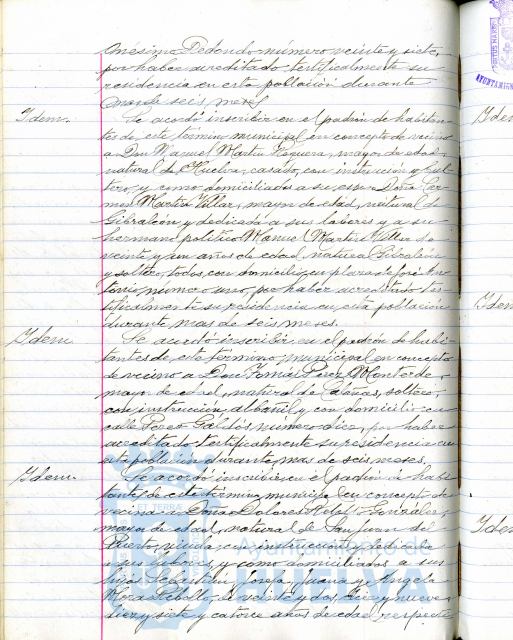 Onésimo Redondo número veinte y siete,
por haber acreditado testificalmente su
residencia en esta población durante
más de seis meses
Idem. Se acordó inscribir en el padrón de habitan-
tes de este término municipal en concepto de vecino
a Don Manuel Martin mayor de edad,
natural de Huelva, casado, con instrución y
y como domiciliados a su esposa Doña Car-
men Martin Villar, mayor de edad, natural de
Gibraleón y dedicada a sus labores y a su
hermano político Manuel Martin Villar de
veinte y un años de edad natural Gibraleón
y soltero, todos con domicilio en plaza de José An-
tonio, número uno, por haber acreditado tes-
tificalmente su residencia en esta población
durante más de seis meses.
Idem. Se acordó inscribir en el padrón de habi-
tantes de este término municipal en concepto
de vecino a Don Tomás Pérez
mayor de edad, natural de Calañas, soltero,
con instrucion, albañil y con domicilio en
calle Perez Galdós número doce, por haber
acreditado testificalmente su residencia en
esta población durante más de seis meses.
Idem. Se acordó inscribir en el padrón de habi-
tantes de este término municipal en concepto de
vecina a Doña Dolores González
mayor de edad, natural de San Juan del
Puerto, viuda, con instrucción y dedicada
a sus labores, y como domiciliados a sus
hijos Sebastian, Josefa, Juana y Angela
Mora Rebollo, de veinte y dos, diez y nueve,
diez y siete y catorce años de edad respecti-
Idem
Idem
Idem
AYUNTAMIEN
Ayuntamiento de
HUELVA